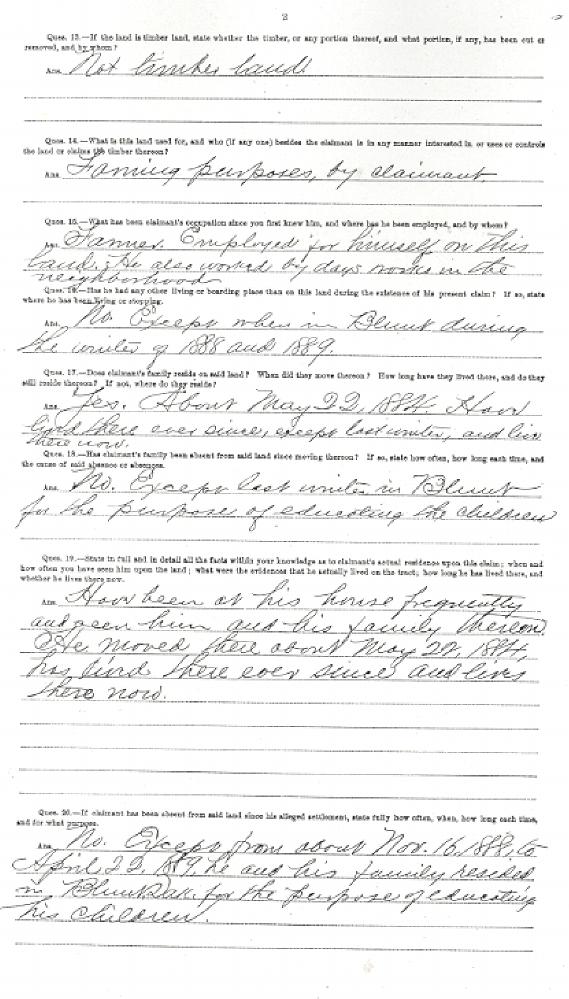 2
Ques. 13.—If the land is timber land, state whether the timber, or any portion thereof, and what portion, if any, has been cut or
removed, and by whom?
Ans. Not timber land
Ques. 14.—What is this land used for, and who (if any one) besides the claimant is in any manner interested in or uses or controls
the land or claims the timber thereon?
Ans. Faming purposes, by claimant.
Ques. 15.—What has been claimant's occupation since you first knew him, and where has he been employed, and by whom?
Ans. Farmer. Employed for himself on this
land. He also worked by days works in the
neighborhood
Ques. 16.—Has he had any other living or boarding place than on this land during the existence of his present claim? If so, state
where he has been living or stopping.
Ans. No. Except when in Blunt during
the winter of 1888 and 1889.
Ques. 17.—Does claimant's family reside on said land? When did they move thereon? How long have they lived there, and do they
still reside thereon? If not, where do they reside?
Ans. Yes. About May 22, 1884. Have
lived there ever since, except last winter, and live
there now.
Ques. 18.—Has claimant's family been absent from said land since moving thereon? If so, state how often, how long each time, and
the cause of said absence or absences.
Ans. No. Except last winter in Blunt
for the purpose of educating the children
Ques. 19.—State in full and in detail all the facts within your knowledge as to claimant's actual residence upon this claim; when and
how often you have seen him upon the land; what were the evidences that he actually lived on the tract; how long he has lived there, and
whether he lives there now.
Ans. Have been at his house frequently
and seen him and his family thereon.
He moved there about May 22, 1884,
has lived there ever since and lives
there now.
Ques. 20.—If claimant has been absent from said land since his alleged settlement, state fully how often, when, how long each time,
and for what purpose.
Ans. No. Except from about Nov. 16, 1888, to
April 22, 1889, he and his family resided
in Blunt Dak. for the purpose of educating
his children.